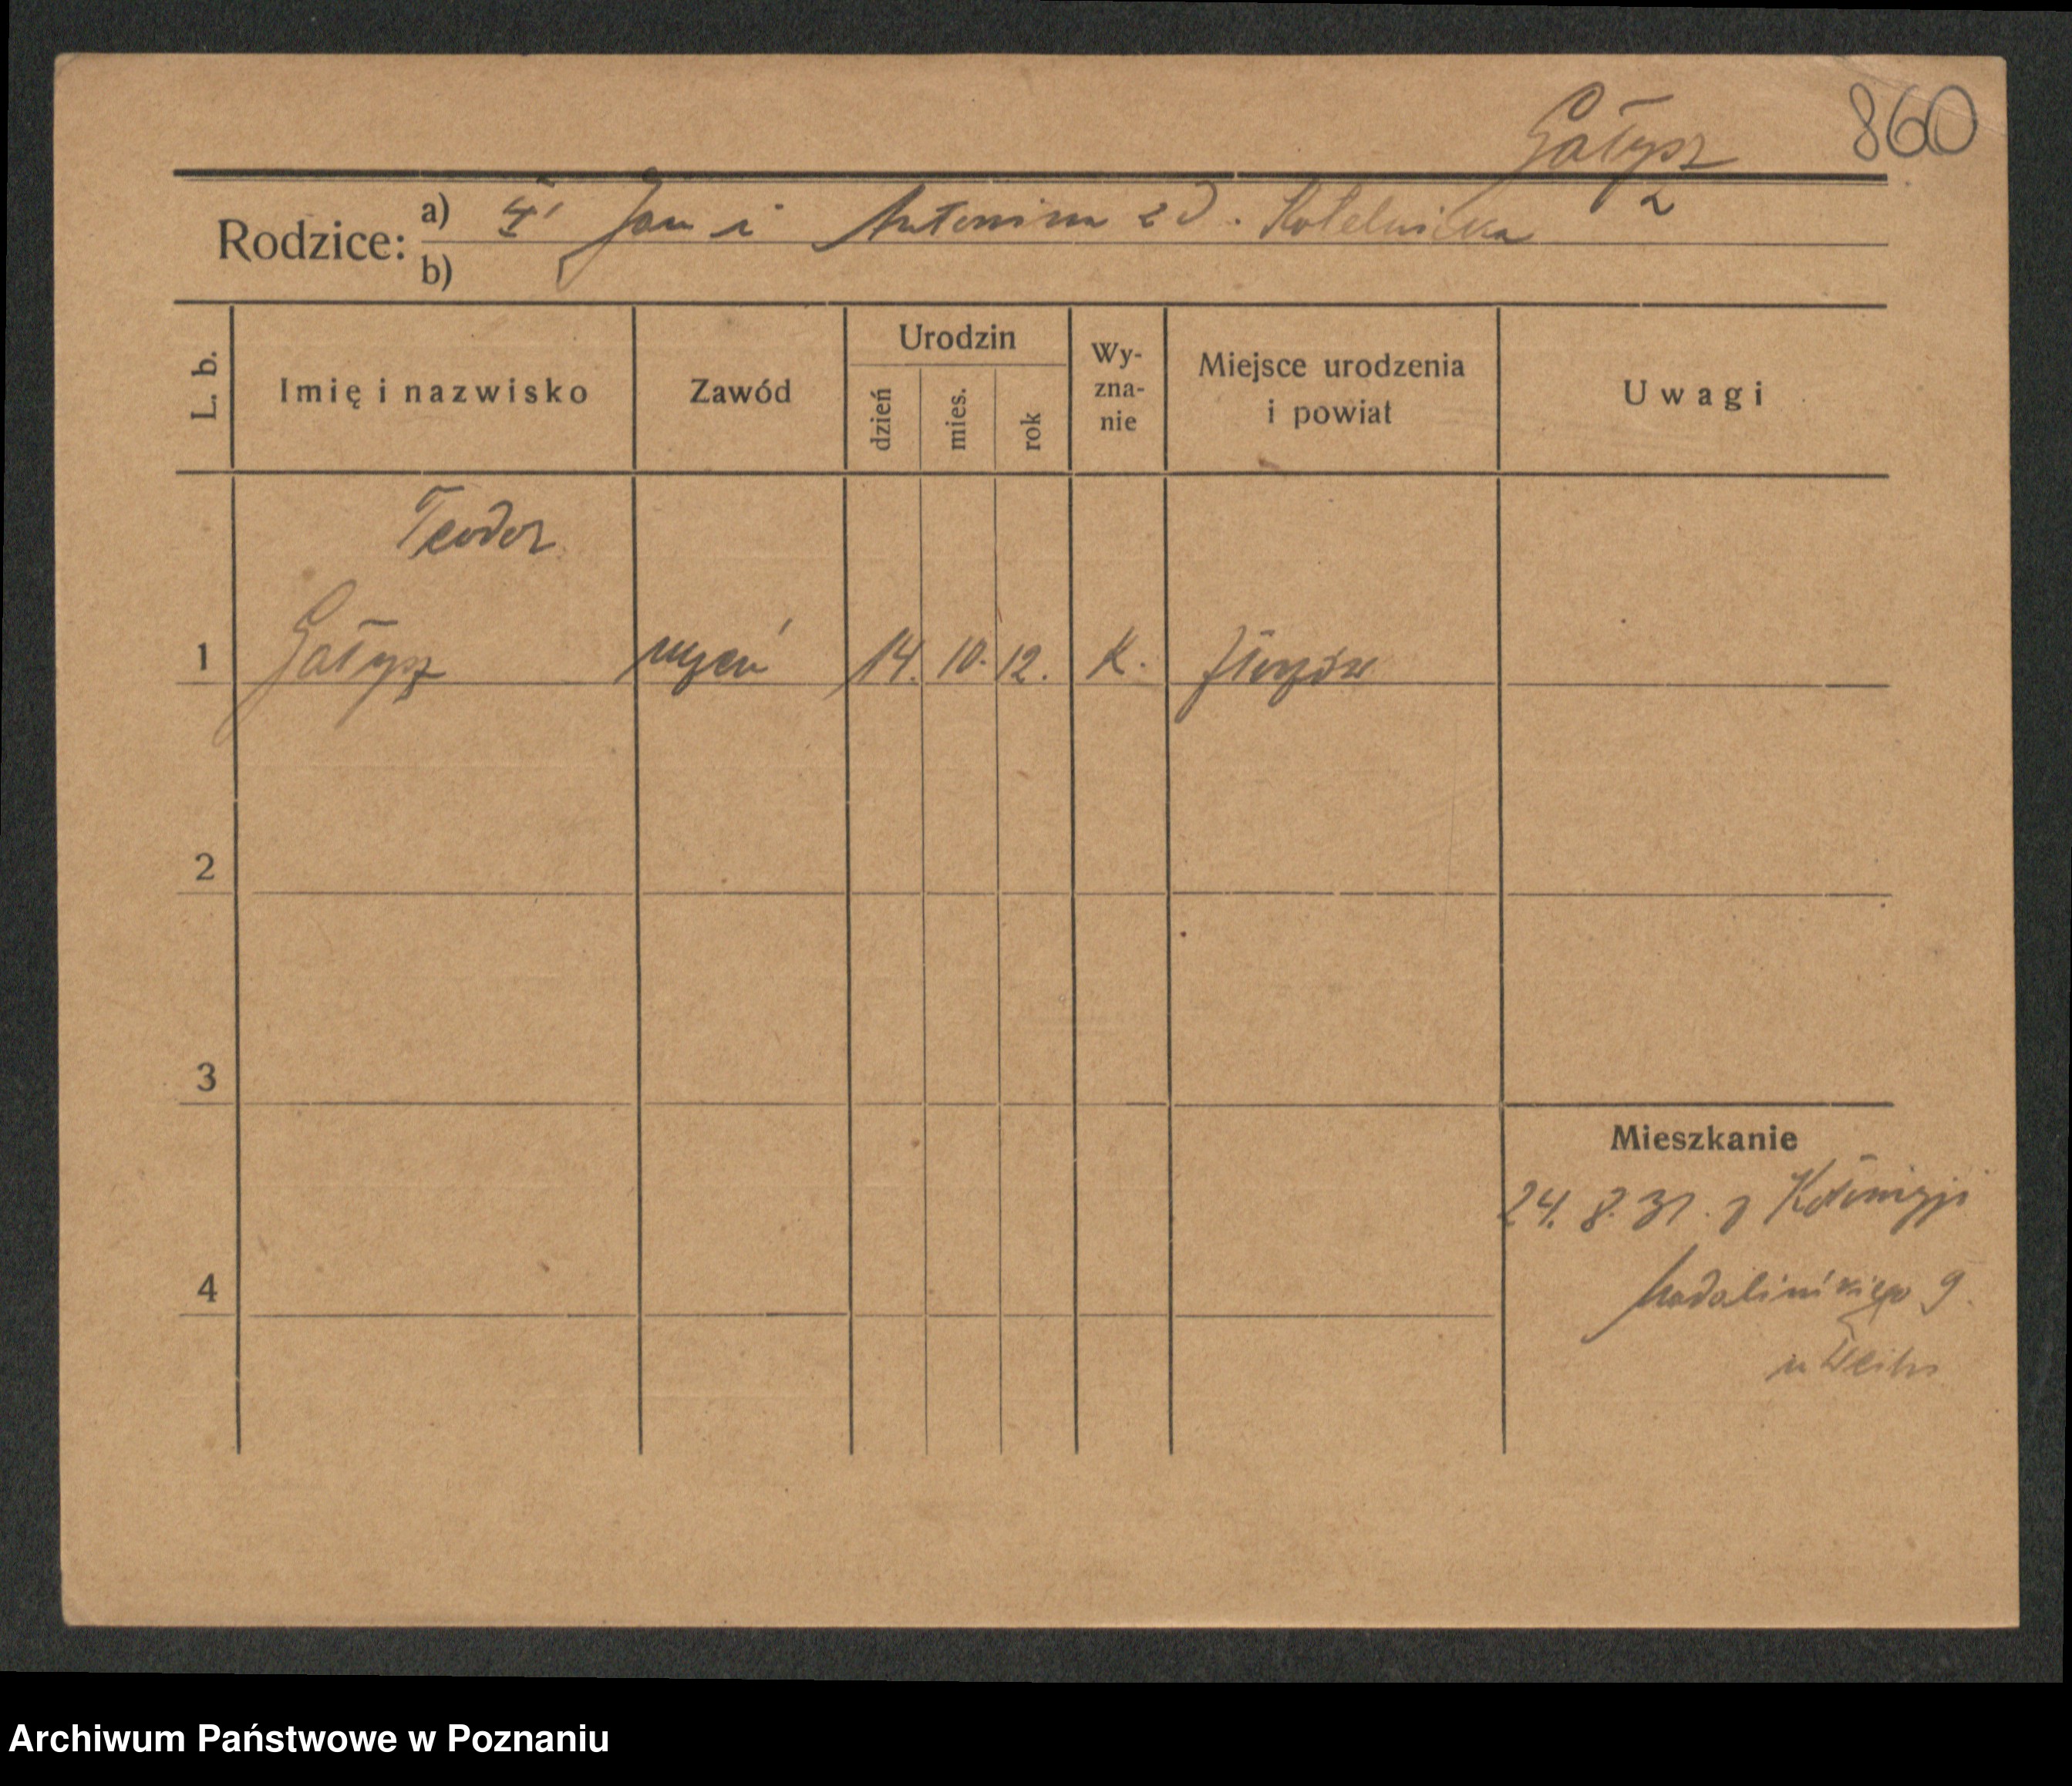 Gałysz 860
2
Rodzice: a) Jan i Antonina zd. Kotelnicka
b)
L. b. Imię i nazwisko Zawód Urodzin dzień mies. rok Wy-zna-nie Miejsce urodzenia i powiat Uwagi
Teodor
1 Gałysz uczeń 14. 10. 12. K.
2
3
Mieszkanie
24. 8. 31. z
4 Madalińskiego 9
u
Archiwum Państwowe w Poznaniu